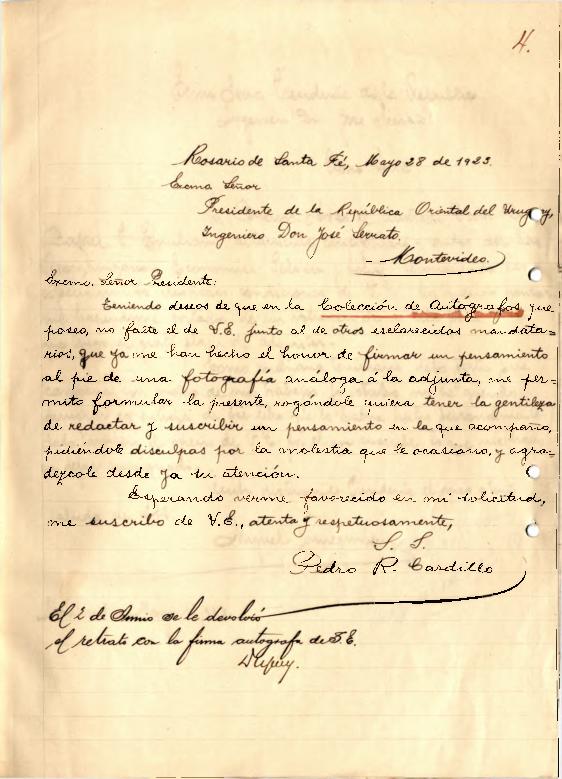 4.
Rosario de Santa Fé, Mayo 28 de 1923.
Excmo Señor
Presidente de la República Oriental del Uruguay,
Ingeniero Don José Serrato.
- Montevideo.
Excmo. Señor Presidente:
Teniendo deseos de que en la Colección de Autógrafos que
poseo, no falte el de V.E. junto al de otros esclarecidos mandata-
rios, que ya me han hecho el honor de firmar un pensamiento
al pie de una fotografía análoga á la adjunta, me per-
mito formular la presente, rogándole quiera tener la gentileza
de redactar y suscribir un pensamiento en la que acompaño,
pidiéndole disculpas por la molestia que le ocasiono, y agra-
dezcole desde ya su atención.
Esperando verme favorecido en mi solicitud,
me suscribo de V.E., atenta y respetuosamente,
S. S.
Pedro R. Cardillo
El 2 de Junio se le devolvió
el retrato con la firma autografa de S.E.